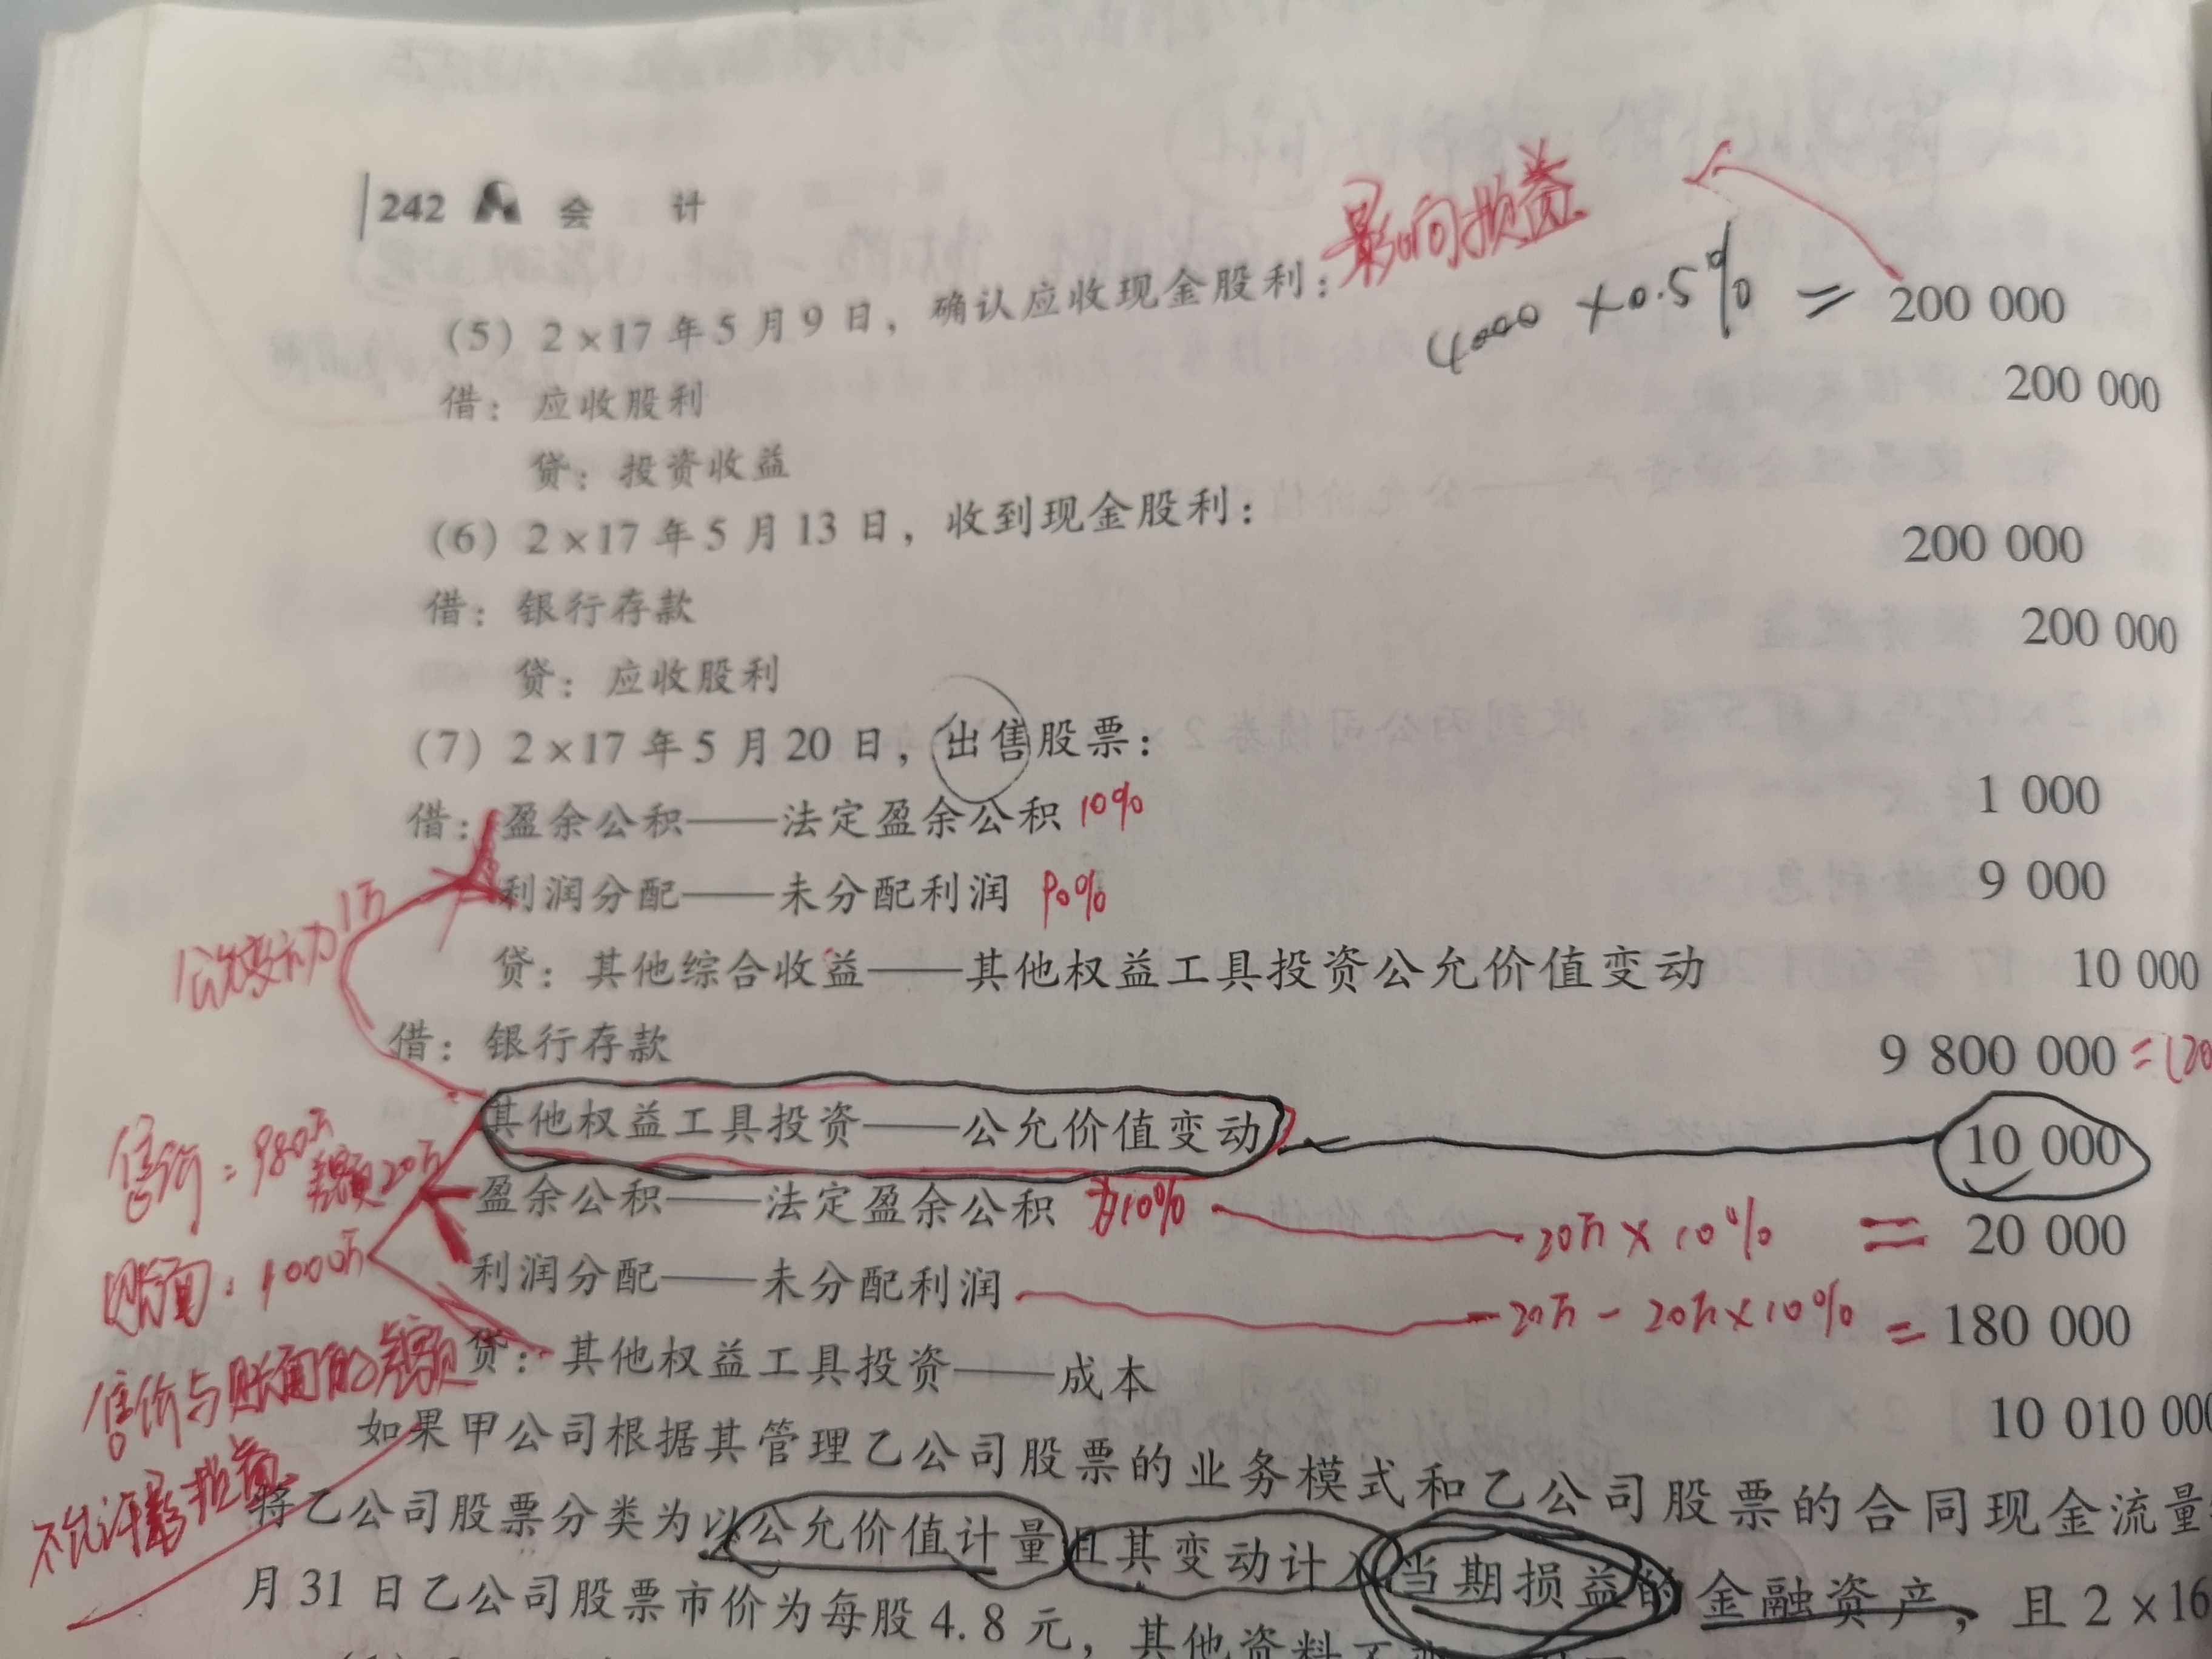 242 会 计
影响损益
(5) 2×17年5月9日，确认应收现金股利：
4000 ×0.5% = 200 000
借：应收股利
200 000
贷：投资收益
(6) 2×17年5月13日，收到现金股利：
借：银行存款 200 000
贷：应收股利 200 000
(7) 2×17年5月20日，出售股票：
借：盈余公积——法定盈余公积 10% 1 000
利润分配——未分配利润 90% 9 000
公允变动1万
贷：其他综合收益——其他权益工具投资公允价值变动 10 000
借：银行存款 9 800 000 =(20
其他权益工具投资——公允价值变动 10 000
售价：980万
差额20万
盈余公积——法定盈余公积 为10% 20万×10% = 20 000
账面：1000万
利润分配——未分配利润 20万-20万×10% = 180 000
贷：其他权益工具投资——成本 10 010 000
售价与账面的差额
不允许影损益
如果甲公司根据其管理乙公司股票的业务模式和乙公司股票的合同现金流量
将乙公司股票分类为以公允价值计量且其变动计入当期损益的金融资产，且2×16
月31日乙公司股票市价为每股4.8元，其他资料不变